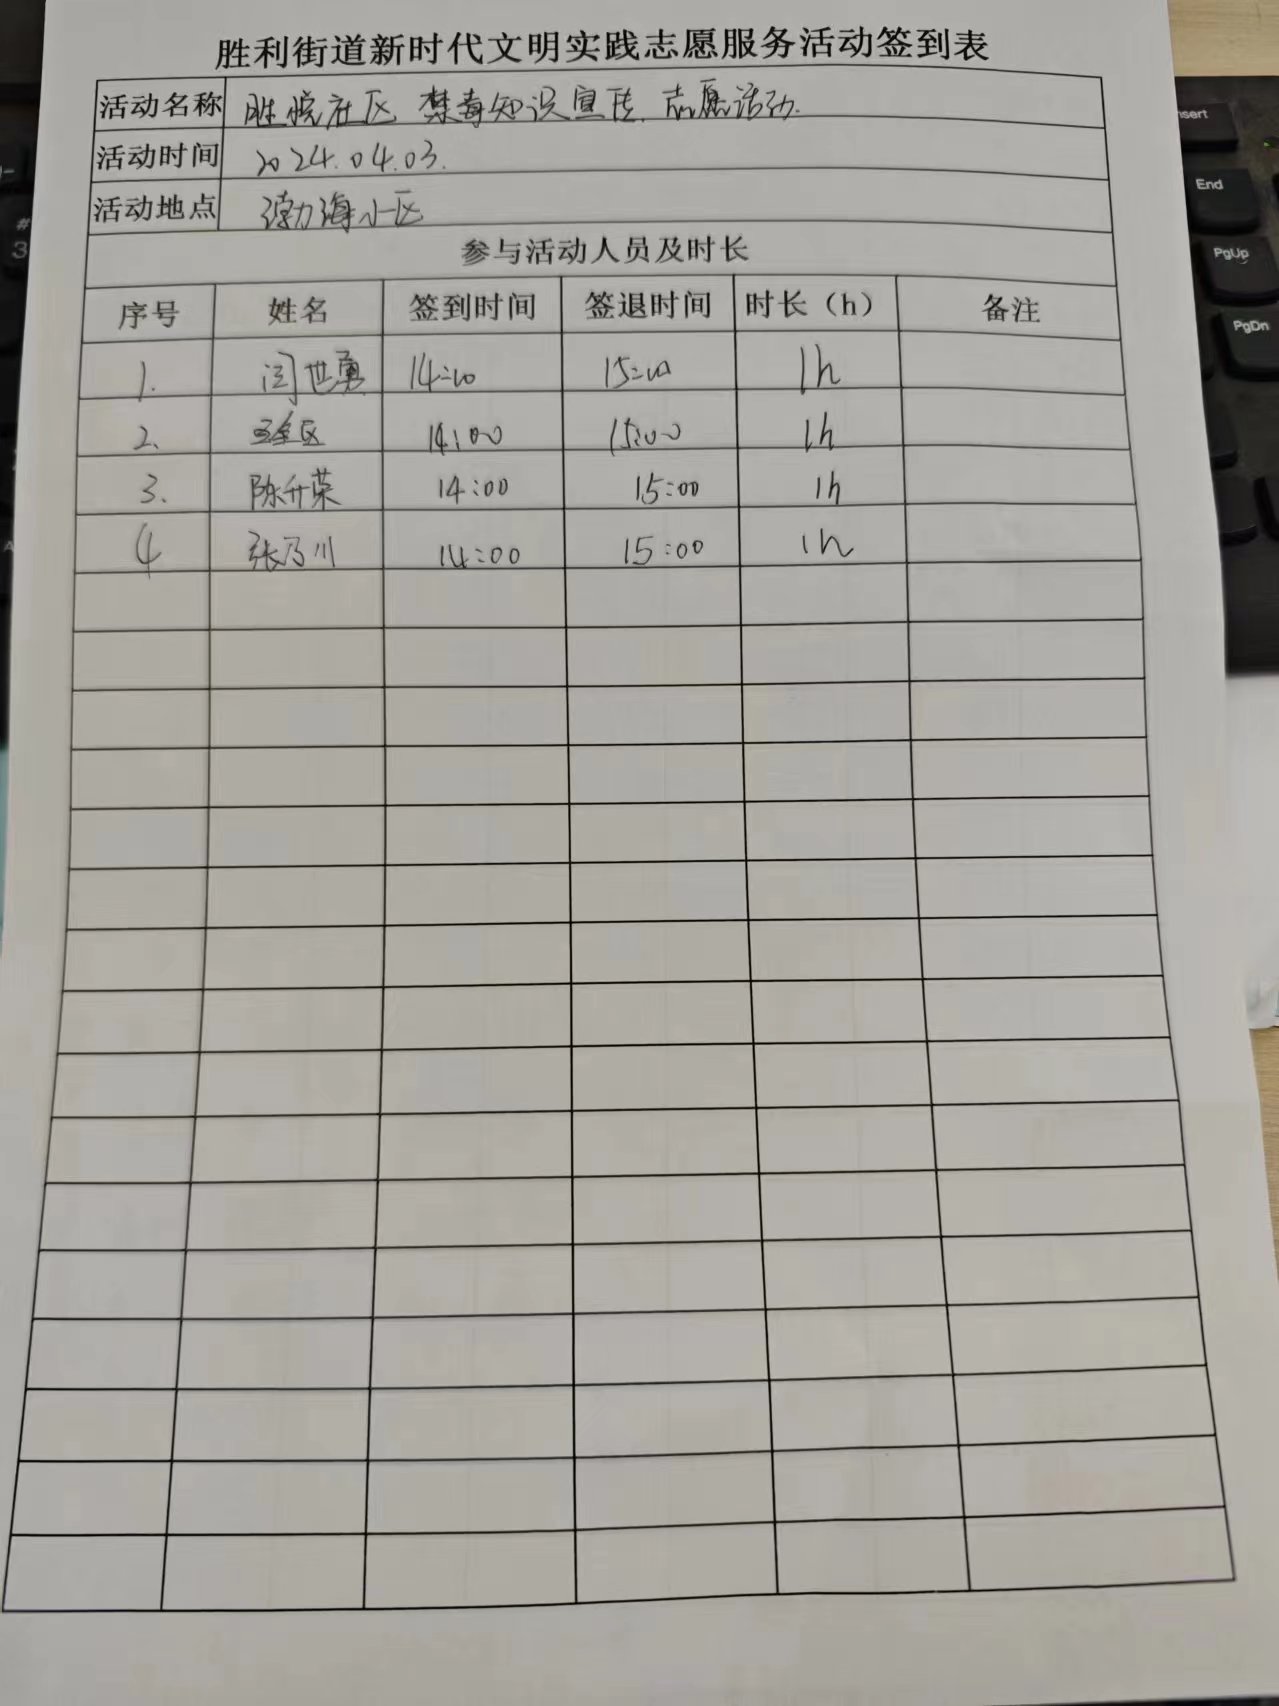 胜利街道新时代文明实践志愿服务活动签到表
活动名称 胜悦社区 禁毒知识宣传 志愿活动.
活动时间 2024.04.03.
活动地点 渤海小区
参与活动人员及时长
序号 姓名 签到时间 签退时间 时长（h） 备注
1. 闫世勇 14:00 15:00 1h
2. 14:00 15:00 1h
3. 陈升荣 14:00 15:00 1h
4 张乃川 14:00 15:00 1h
nsert
End
PgUp
PgDn
#
3